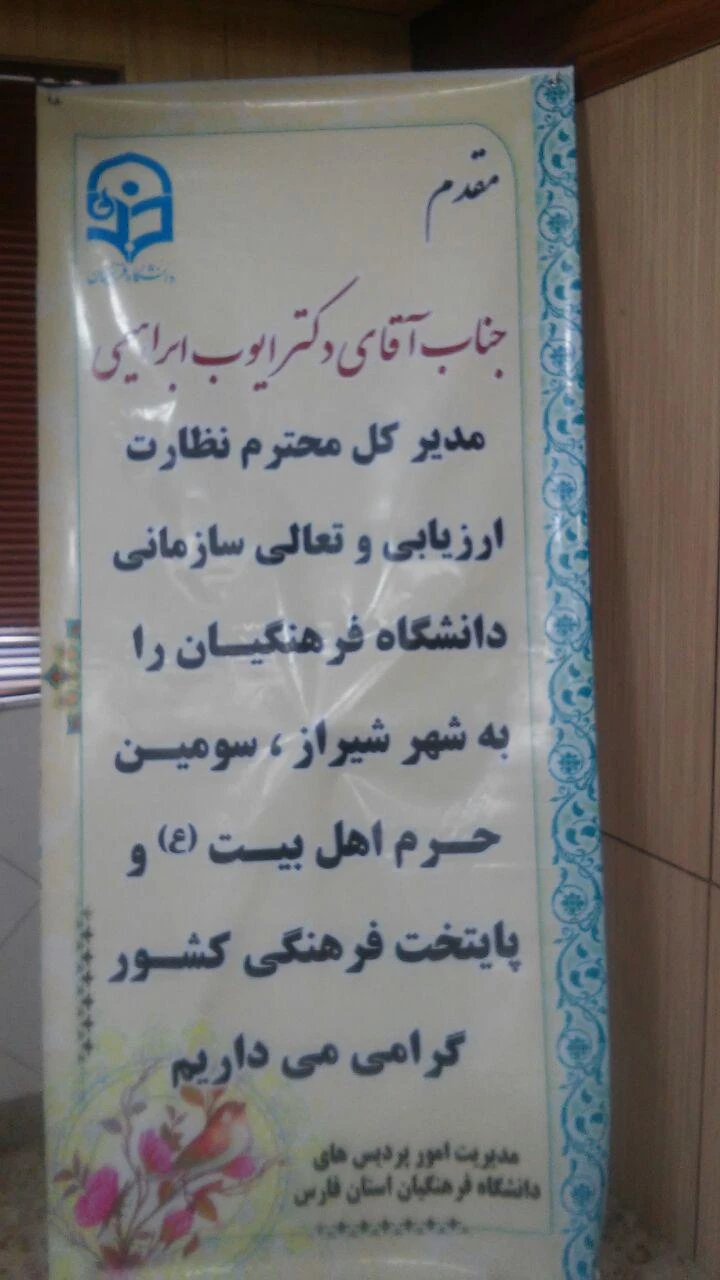 دانشگاه فرهنگیان
مقدم
جناب آقای دکتر ایوب ابراهیمی
مدیر کل محترم نظارت
ارزیابی و تعالی سازمانی
دانشگاه فرهنگیـــان را
به شهر شیراز ، سومیـــن
حـــرم اهل بیـــت (ع) و
پایتخت فرهنگی کشـــور
گرامی می داریم
مدیریت امور پردیس های
دانشگاه فرهنگیان استان فارس